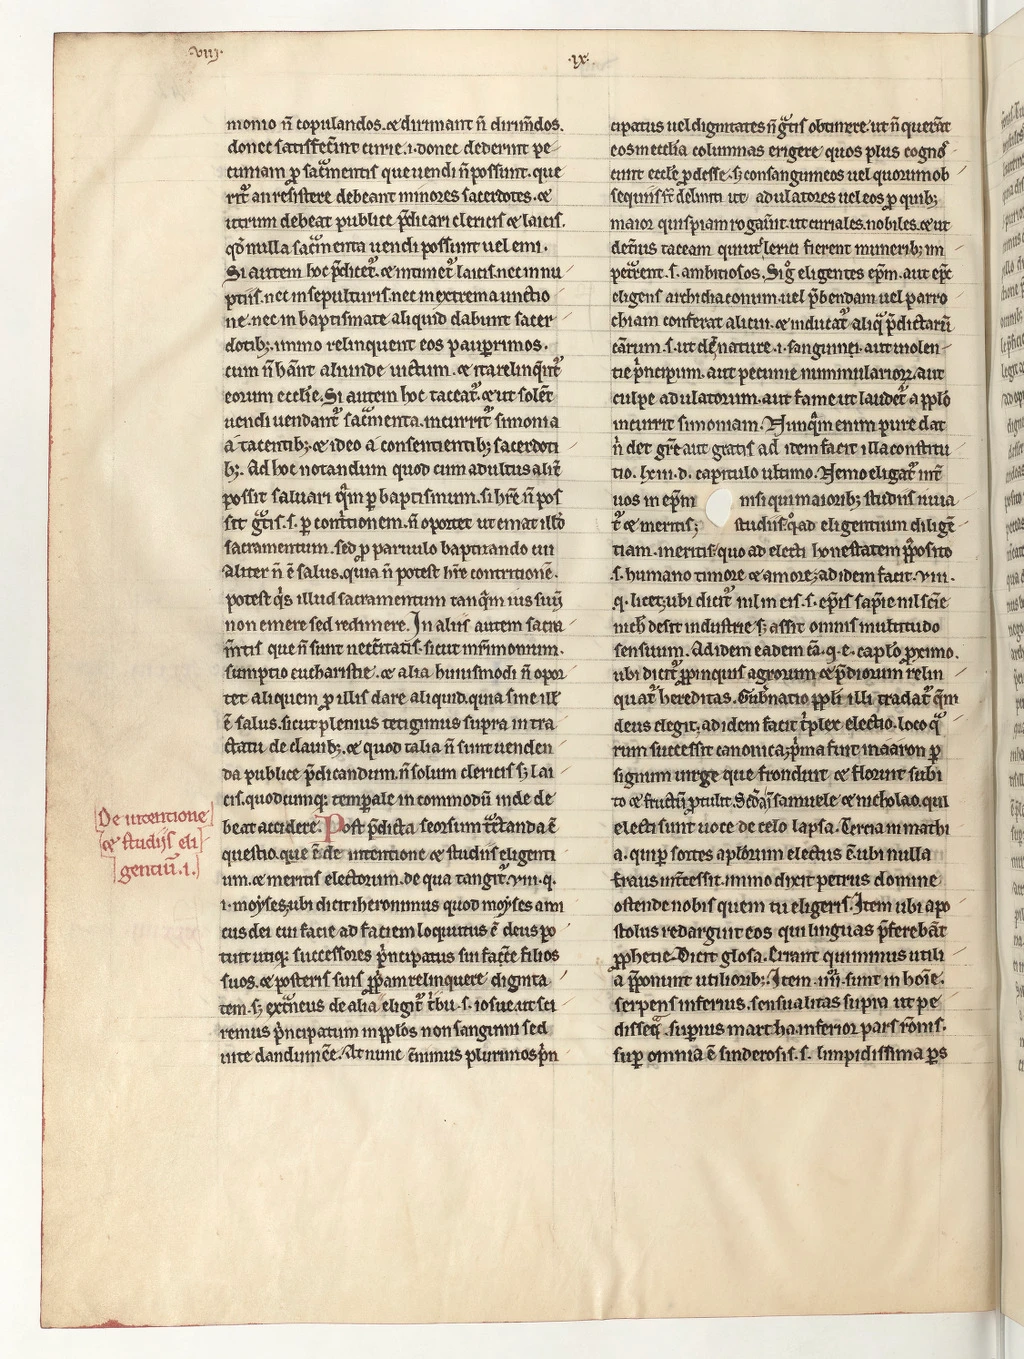 .viij.
.ix.
monio ñ copulandos. ⁊ dirimant ñ dirimẽdos.
donec satisfecẽint curie .i. donec dederint pe
cuniam ꝓ sacͣmentis que uendi ñ possunt. que
rit̉ an resistere debeant minores sacerdotes. ⁊
utrum debeat publice p̃dicari clericis ⁊ laicis.
qđ nulla sacͣmenta uendi possunt uel emi.
Si autem hoc p̃dicet̉. ⁊ intimet̉ laicis. nec in nu
ptiis. nec in sepulturis. nec in extrema unctio
ne. nec in baptismate aliquid dabunt sacer
dotib; immo relinquent eos paup̱rimos.
cum ñ hãnt aliunde uictum. ⁊ ita relinq̃nt̉
eorum ecclẽ. Si autem hoc taceat̉. ⁊ ut solẽt
uendi uendant̉ sacͣmenta. incurrit̉ simonia
a tacentib; ⁊ ideo a consentientib; sacerdoti
b;. Ad hoc notandum quod cum adultus alit̃
possit saluari q̃m p̱ baptismum. si hr̃e ñ pos
sit gͣtis .s. p̱ cont̃tionem. ñ oportet ut emat illđ
sacramentum. sed ꝓ paruulo baptizando cui
aliter ñ ẽ salus. quia ñ potest hr̃e contritionẽ.
potest q̓s illud sacramentum tanq̃m ius suũ
non emere sed redimere. In aliis autem sacra
m̃tis que ñ sunt necẽitatis. sicut infirmorum.
sumptio eucharistie. ⁊ alia huiusmodi ñ opor
tet aliquem ꝓ illis dare aliquid. quia sine ill̃
ẽ salus. sicut plenius tetigimus supra in tra
ctatu de clauib;. ⁊ quod talia ñ sunt uenden
da publice p̃dicandum. ñ solum clericis s; lai
cis. quodcumq; temp̱ale incommodũ inde de
beat accidere. Post p̃dicta seorsum tͣctanda ẽ
De intentione
⁊ studijs eli
gentiũ .i.
questio. que ẽ de intentione ⁊ studiis eligenti
um. ⁊ meritis electorum. de qua tangit̉ .viii. q.
i. moyses; ubi dicit iheronimus quod moyses ami
cus dei cui facie ad faciem loquutus ẽ deus po
tuit utiq; successores p̓ncipatus sui facẽe filios
suos. ⁊ posteris suis ꝓp̓am relinquere dignita
tem. s; extͣneus de alia eligit̉ t̓bu .s. iosue. ut sci
remus p̓ncipatum in pplõs non sanguini sed
uite dandum ẽe. At nunc c̃nimus plurimos p̓n
cipatus uel dignitates ñ gͣtis obtinere. ut ñ querãt
eos in ecclia columnas erigere quos plus cogno
cunt eccle ꝓdesse. s; consanguineos uel quorum ob
sequiis st̃ deliniti ut adulatores uel eos ꝓ quib;
maior quispiam rogaũit. ut curiales. nobiles. ⁊ ut
det̃ius taceam qui ut clerici fierent munerib; im
pet̃rent .s. ambitiosos. Si gͦ eligentes ep̃m. aut ep̃c
eligens archidiaconum. uel p̃bendam uel parro
chiam conferat alicui. ⁊ inducat̉ aliq̃ p̃dictarũ
cãrum .s. ut de nature .i. sanguinei. aut uiolen
tie p̓ncipum. aut pecunie nummulariorꝝ. aut
culpe adulatorum. aut fame ut laudet̉ a pplõ
incurrit simoniam. Nunq̃m enim pure dat
ñ det gr̃e aut gratis ad item facit illa constitu
tio .lxiii. d. capitulo ultimo. Nemo eligat̉ int̃
uos in ep̃m nisi qui maiorib; studiis iuua
t̉ ⁊ meritis; studiis q̊ad eligentium dilige
tiam. meritis quo ad electi honestatem p̱posito
.s. humano timore ⁊ amore; ad idem facit .viii.
.q. licet; ubi dicit̉ nil in eis .s. ep̃is sap̃ie nil scie
nich desit industrie s; assit omnis multitudo
sensuum. Ad idem eadem cã .q. e. caplõ ꝓximo.
ubi dicit̉ ꝓpinquis agrorum ⁊ p̃diorum relin
quat̉ hereditas. Gub̃natio ppli illi tradat̉ q̃m
deus elegit; ad idem facit t̓plex electio. loco q̃
rum successit canonica; p̓ma fuit in aaron ꝑ
signum uirge que fronduit ⁊ floruit subi
to ⁊ fructũ ꝓtulit. Scđa ĩ samuele ⁊ nicholao. qui
electi sunt uoce de celo lapsa. Tercia in mathi
a. qui ꝑ sortes aplõrum electus ẽ. ubi nulla
fraus int̃cessit. immo dixit petrus domine
ostende nobis quem tu eligeris. Item ubi apo
stolus redarguit eos qui linguas p̃ferebãt
ꝓphetie. Dicit glosa. Errant qui minus utili
a p̃ponunt utiliorib;. Item .iiii. sunt in hoĩe.
serpens inferius. sensualitas supra ut pe
disseq̃. sup̱ius martha. inferior pars rõnis.
sup̱ omnia ẽ sinderosis .s. limpidissima p̱s